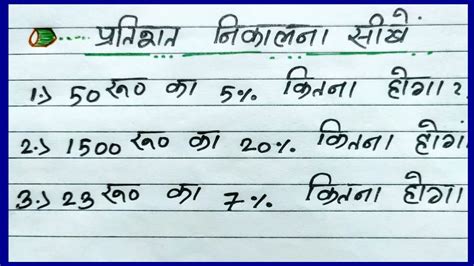 प्रतिशत निकालना सीखें
1.) 50 रू० का 5% कितना होगा ?
2.) 1500 रू० का 20% कितना होगा
3.) 23 रू० का 7% कितना होगा